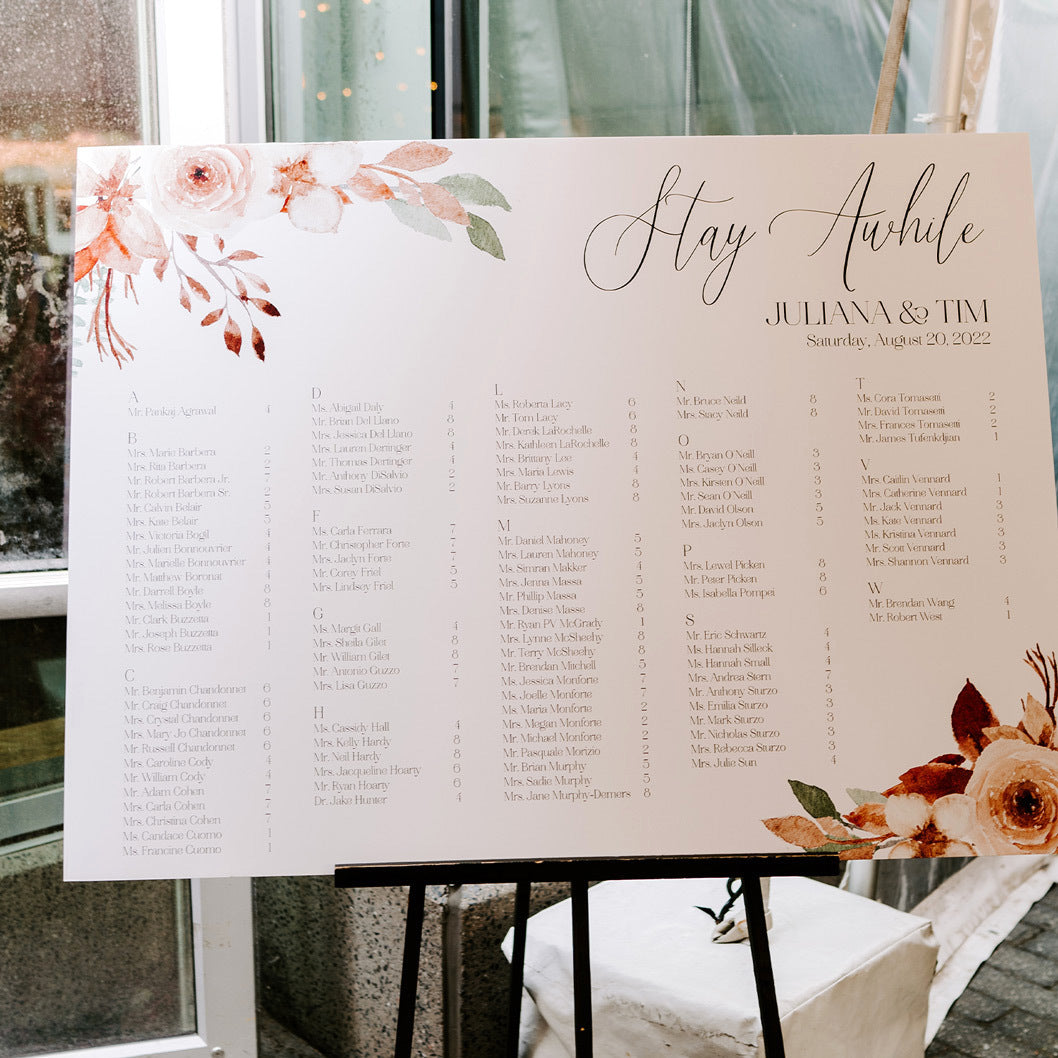 Stay Awhile
JULIANA & TIM
Saturday, August 20, 2022
A
Mr. Pankaj Agrawal 4
B
Mrs. Marie Barbera 2
Mrs. Rita Barbera 2
Mr. Robert Barbera Jr. 2
Mr. Robert Barbera Sr. 2
Mr. Calvin Belair 5
Mrs. Kate Belair 5
Ms. Victoria Bogil 4
Mr. Julien Bonnouvrier 4
Mrs. Marielle Bonnouvrier 4
Mr. Matthew Boronat 4
Mr. Darrell Boyle 8
Mrs. Melissa Boyle 8
Mr. Clark Buzzetta 1
Mr. Joseph Buzzetta 1
Mrs. Rose Buzzetta 1
C
Mr. Benjamin Chandonnet 6
Mr. Craig Chandonnet 6
Mrs. Crystal Chandonnet 6
Mrs. Mary Jo Chandonnet 6
Mr. Russell Chandonnet 6
Mrs. Caroline Cody 4
Mr. William Cody 4
Mr. Adam Cohen 7
Mrs. Carla Cohen 7
Mrs. Christina Cohen 7
Ms. Candace Cuomo 1
Ms. Francine Cuomo 1
D
Ms. Abigail Daly 4
Mr. Brian Del Llano 8
Mrs. Jessica Del Llano 8
Mrs. Lauren Dertinger 4
Mr. Thomas Dertinger 4
Mr. Anthony DiSalvio 2
Mrs. Susan DiSalvio 2
F
Ms. Carla Ferrara 7
Mr. Christopher Forte 7
Mrs. Jaclyn Forte 7
Mr. Corey Friel 5
Mrs. Lindsey Friel 5
G
Ms. Margit Gall 4
Mrs. Sheila Gilet 8
Mr. William Gilet 8
Mr. Antonio Guzzo 7
Mrs. Lisa Guzzo 7
H
Ms. Cassidy Hall 4
Mrs. Kelly Hardy 8
Mr. Neil Hardy 8
Mrs. Jacqueline Hoarty 6
Mr. Ryan Hoarty 6
Dr. Jake Hunter 4
L
Ms. Roberta Lacy 6
Mr. Tom Lacy 6
Mr. Derek LaRochelle 8
Mrs. Kathleen LaRochelle 8
Mrs. Brittany Lee 4
Mrs. Maria Lewis 4
Mr. Barry Lyons 8
Mrs. Suzanne Lyons 8
M
Mr. Daniel Mahoney 5
Mrs. Lauren Mahoney 5
Ms. Simran Makker 4
Mrs. Jenna Massa 5
Mr. Phillip Massa 5
Mrs. Denise Masse 8
Mr. Ryan PV McGrady 1
Mrs. Lynne McSheehy 8
Mr. Terry McSheehy 8
Mr. Brendan Mitchell 5
Ms. Jessica Monforte 7
Ms. Joelle Monforte 7
Ms. Maria Monforte 2
Mrs. Megan Monforte 2
Mr. Michael Monforte 2
Mr. Pasquale Morizio 2
Mr. Brian Murphy 5
Mrs. Sadie Murphy 5
Mrs. Jane Murphy-Demers 8
N
Mr. Bruce Neild 8
Mrs. Stacy Neild 8
O
Mr. Bryan O'Neill 3
Ms. Casey O'Neill 3
Mrs. Kirsten O'Neill 3
Mr. Sean O'Neill 3
Mr. David Olson 5
Mrs. Jaclyn Olson 5
P
Mrs. Lewel Picken 8
Mr. Peter Picken 8
Ms. Isabella Pompei 6
S
Mr. Eric Schwartz 4
Ms. Hannah Silleck 4
Ms. Hannah Small 4
Mrs. Andrea Stern 7
Mr. Anthony Sturzo 3
Ms. Emilia Sturzo 3
Mr. Mark Sturzo 3
Mr. Nicholas Sturzo 3
Mrs. Rebecca Sturzo 3
Mrs. Julie Sun 4
T
Ms. Cora Tomasetti 2
Mr. David Tomasetti 2
Mrs. Frances Tomasetti 2
Mr. James Tufenkdjian 1
V
Mrs. Caitlin Vennard 1
Mrs. Catherine Vennard 1
Mr. Jack Vennard 3
Ms. Kate Vennard 3
Ms. Kristina Vennard 3
Mr. Scott Vennard 3
Mrs. Shannon Vennard 3
W
Mr. Brendan Wang 4
Mr. Robert West 1